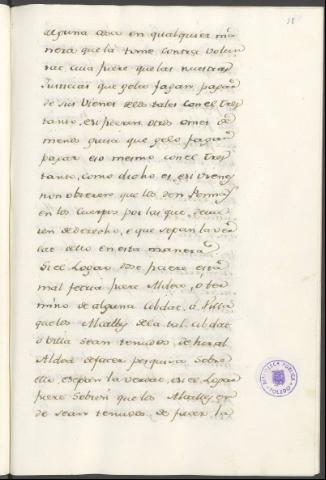 alguna cosa en qualquier ma
nera que la tome contra volun
tat cuia fuere que las nuestras
Justicias que gelo fagan pagar
de sus vienes dellos tales con el tres
tanto, e si fueran otros omes de
menos guisa que gelo fagan
pagar eso mesmo con el tres
tanto, como dicho es, e si vienes
non obieren que les den Pena
en los Cuerpos por las que
de derecho, e que sepan la ver
dat dello en esta manera
Si el Logar do fuere esta
mal fetria fuere Aldea, o ter
mino de alguna cibdat, o Villa
que los Alcalles de la tal cibdat
o villa sean tenudos, de ir al
Aldea de facer pesquisa sobre
ello, e sepan la verdat, e si el Logar
fuere sobre si que los Alcalles en
de sean tenudos de facer la
BIBLIOTECA PUBLICA
TOLEDO